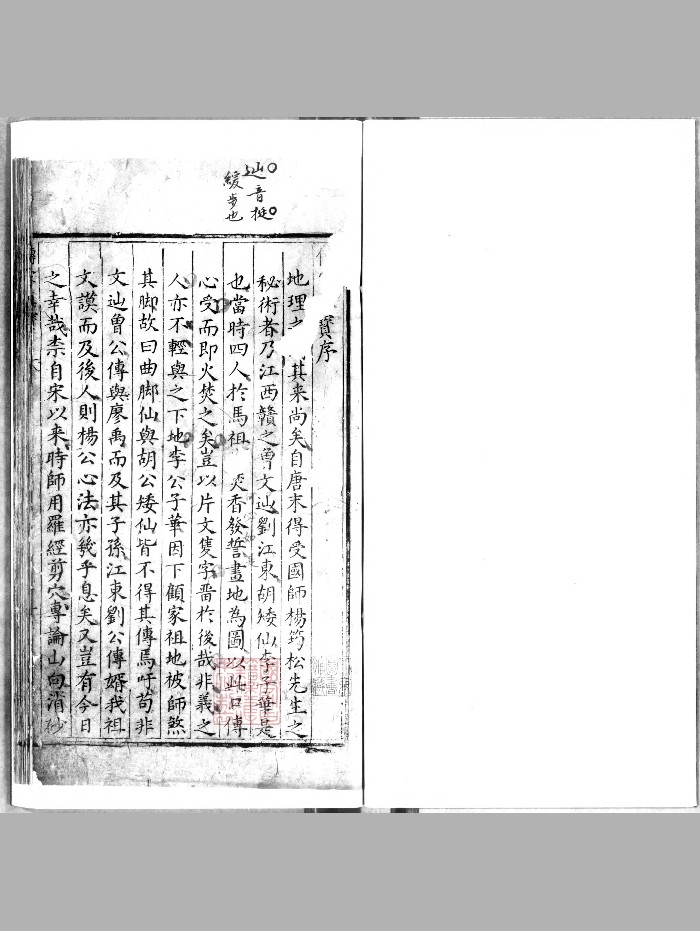 辿音挺
緩步也
寶序
地理之 其来尚矣自唐末得受國師楊筠松先生之
秘術者乃江西贛之曾文辿劉江東胡矮仙李子華是
也當時四人於馬祖 焚香發誓畫地為圖以此口傳
心受而即火焚之矣豈以片文隻字畱於後哉非義之
人亦不輕與之下地李公子華因下顧家祖地被師煞
其脚故曰曲脚仙與胡公矮仙皆不得其傳焉吁苟非
文辿曾公傳與廖禹而及其子孫江東劉公傳婿我祖
文謨而及後人則楊公心法亦幾乎息矣又豈有今日
之幸哉柰自宋以来時師用羅經剪穴專論山向消砂